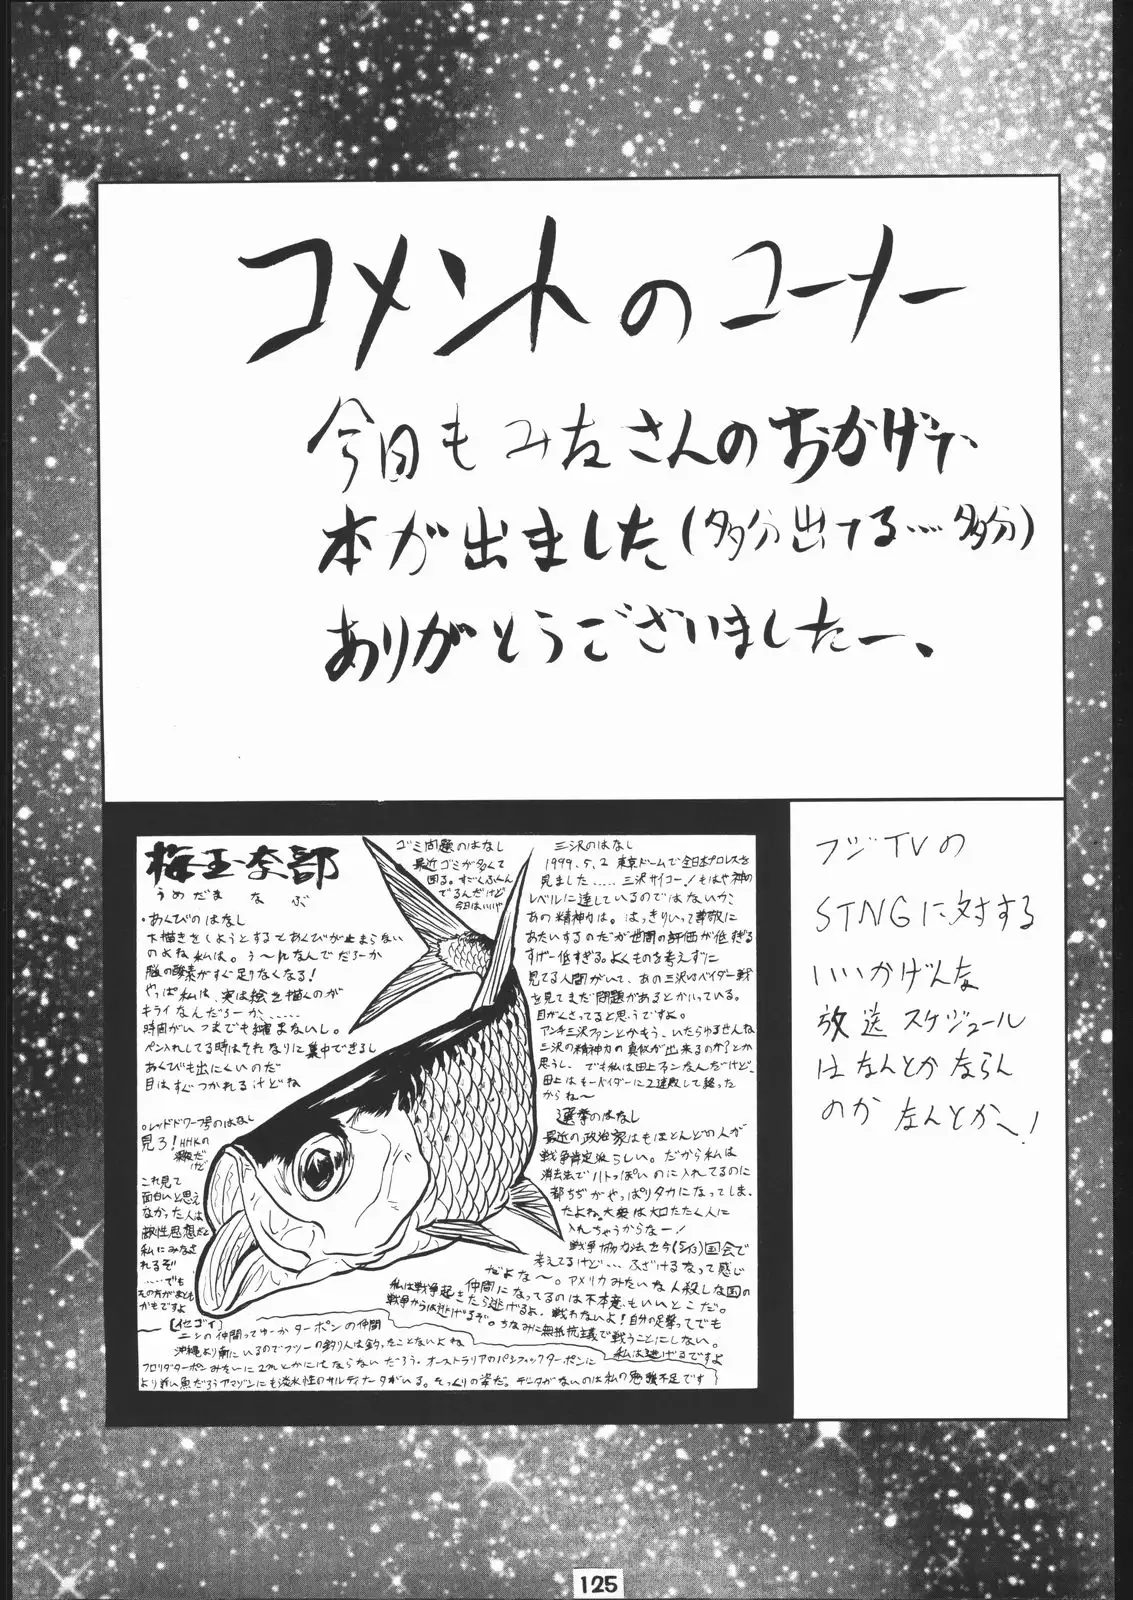 コメントのコーナー
今日もみなさんのおかげで、
本が出ました(多分出てる……多分)
ありがとうございましたー、
梅玉奈部
うめだまなぶ
○あくびのはなし
下描きをしようとするとあくびが止まらない
のよね私は。う〜んなんでだろーか
脳の酸素がすぐ足りなくなる!
やっぱ私は、実は絵を描くのが
キライなんだろーか、……
時間がいつまでも縮まないし。
ペン入れしてる時はそれなりに集中できるし
あくびも出にくいのだ
目はすぐつかれるけどね
○レッドドワーフ号のはなし
見ろ!NHKの
深夜だけど
これ見て
面白いと思え
なかった人は
敵性思想だと
私にみなさ
れるぞ
……でも
その方がまとも
かもですよ
ゴミ問題のはなし
最近ゴミが多くて
困る。すごくふくん
でるんだけど
今日はいいや
三沢のはなし
1999.5.2 東京ドームで全日本プロレスを
見ました……三沢サイコー!もはや神の
レベルに達しているのではないか、
あの精神力は。はっきりいって尊敬に
あたいするのだが世間の評価が低すぎる
すげー低すぎる。よくものを考えずに
見てる人間がいて、あの三沢VSベイダー戦
を見てまだ問題があるとかいっている。
目がくさってると思うですよ。
アンチ三沢ファンとかもう、いたらゆるせんね
三沢の精神力の真似が出来るのか?とか
思うし、でも私は田上ファンなんだけど、
田上はもーベイダーに2連敗して終った
からね〜
○選挙のはなし
最近の政治家はもほとんどの人が
戦争肯定派らしい。だから私は
消去法でハトっぽいのに入れてるのに
都ちぢがやっぱりタカになってしま、
たよね。大衆は大口たたく人に
入れちゃうからなー!
戦争協力法を今国会で
考えてるけど…ふざけるなって感じ
だよな〜。アメリカみたいな人殺しな国の
仲間になってるのは不本意もいいとこだ。
私は戦争起きたら逃げるよ、戦わないよ!自分の足撃ってでも
戦争からは逃げるぞ。ちなみに無抵抗主義で戦うことにしない。
私は逃げるですよ
【イセゴイ】
ニシンの仲間ってゆーかターポンの仲間
沖縄より南にいるのでフツーの釣り人は釣ったことないよね
フロリダターポンみたいに2mとかにはならないだろう。オーストラリアのパシフィックターポンに
より近い魚だろうアマゾンにも淡水性のサルディナータがいる。そっくりの姿だ。データがないのは私の勉強不足です
フジTVの
STNGに対する
いいかげんな
放送スケジュール
はなんとかならん
のか なんとかへ!
125